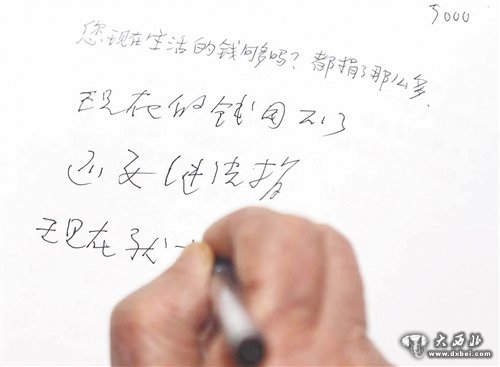 5000
您现在生活的钱够吗？都捐了那么多.
现在的钱用不了
还要继续捐
现在我一
大西北
www.dxbei.com